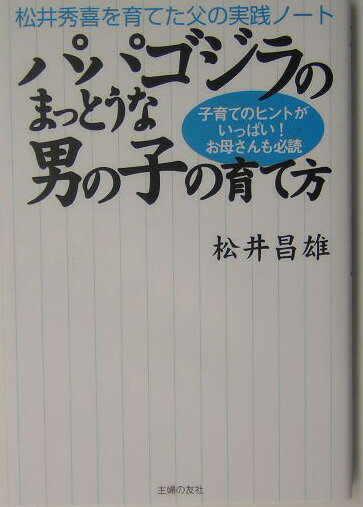 松井秀喜を育てた父の実践ノート
パパゴジラの
まっとうな
男の子の育て方
子育てのヒントが
いっぱい！
お母さんも必読
松井昌雄
主婦の友社